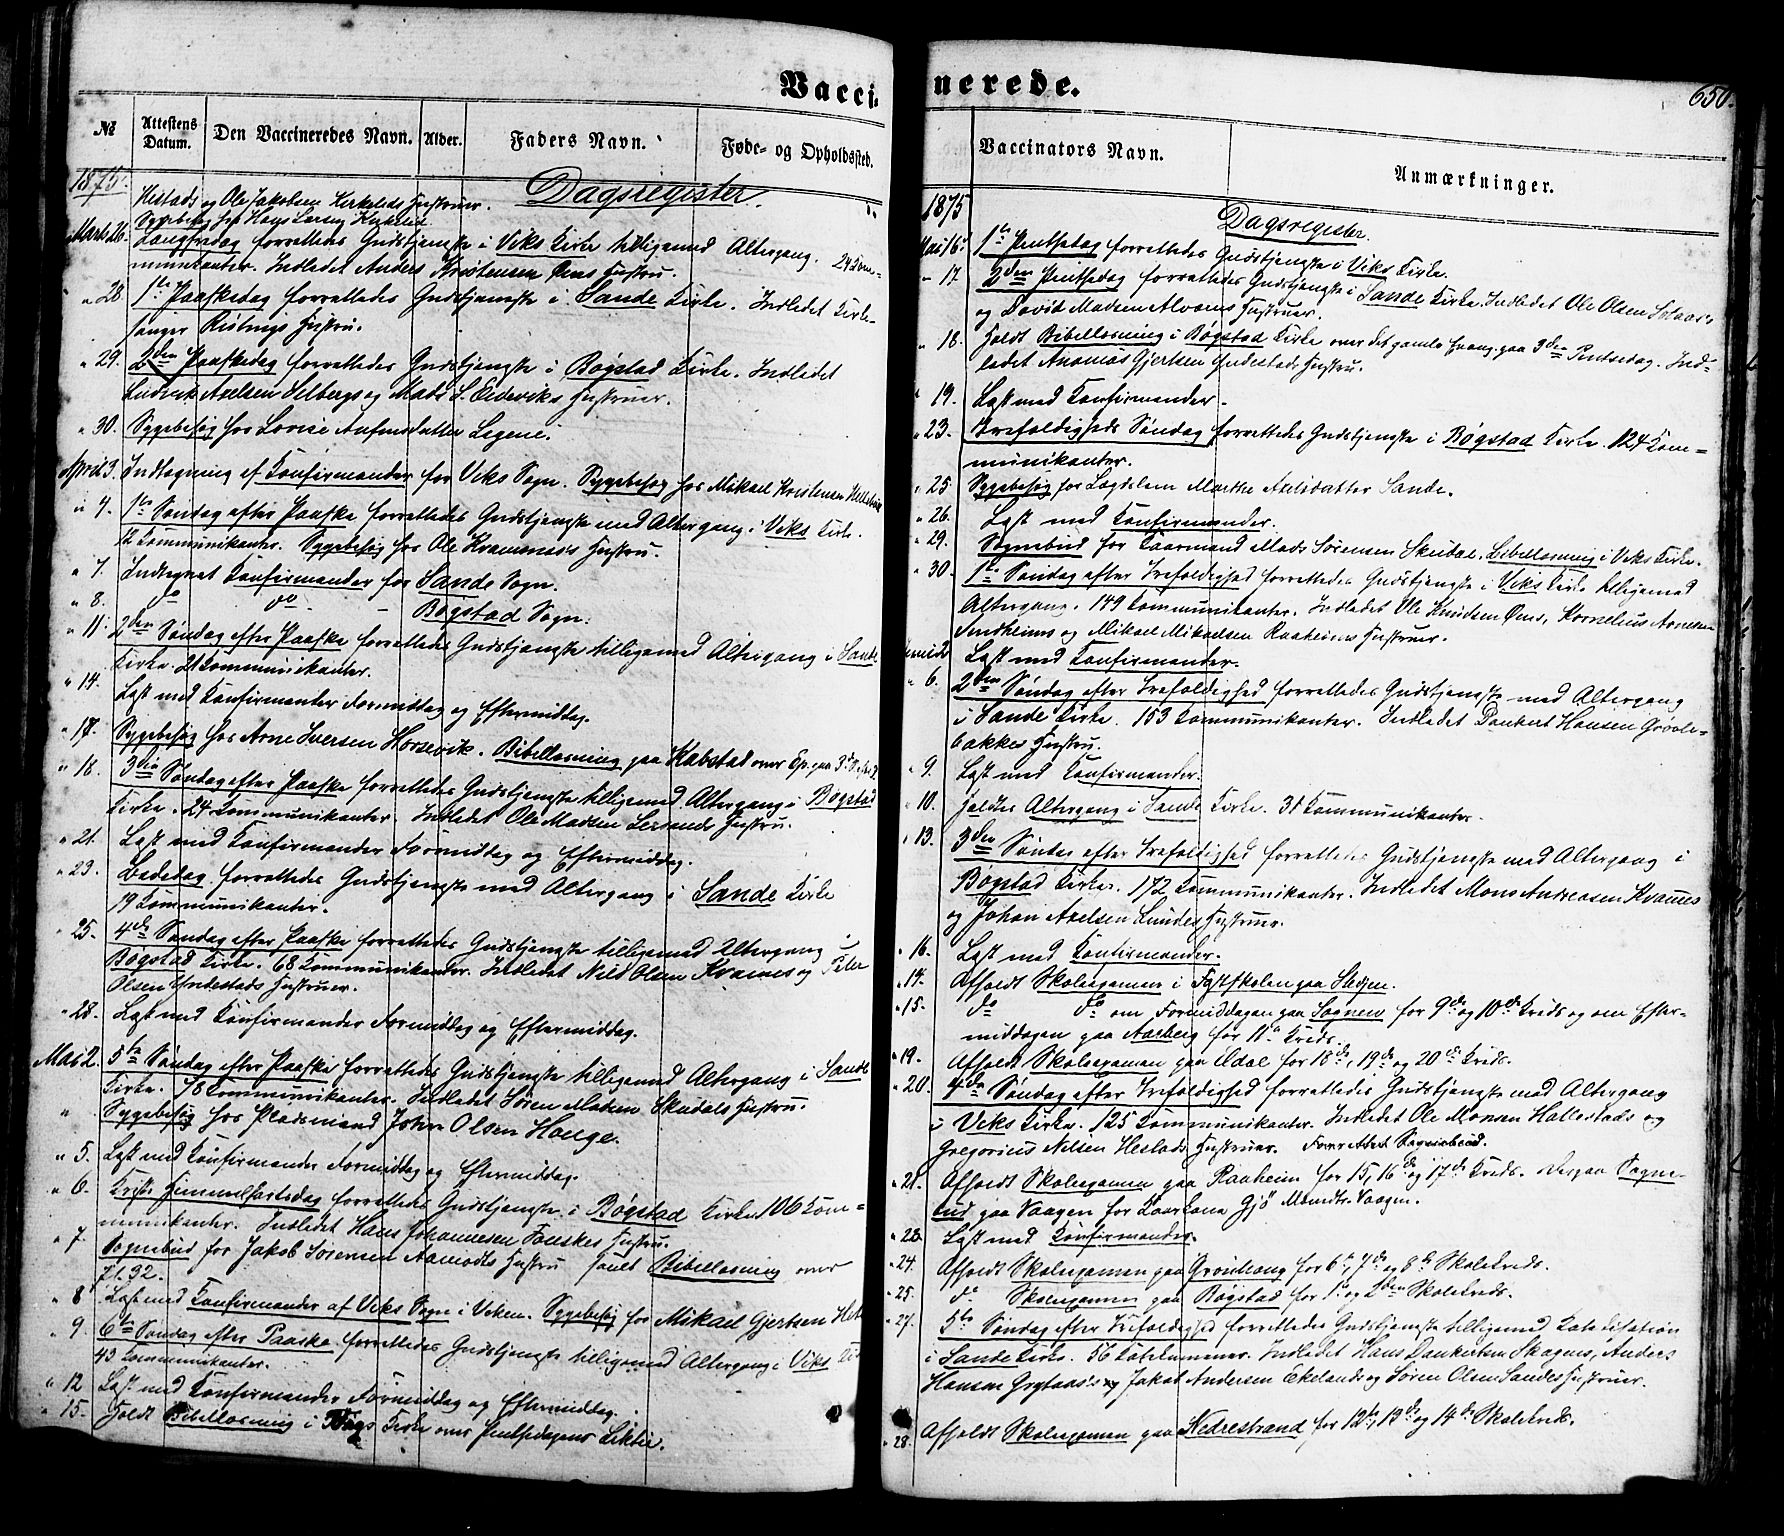 Vacci-
№
Attestens Datum.
Den Vaccineredes Navn.
Alder.
Faders Navn.
Føde- og Opholdssted.
1875.
Dagsregister.
Hestads og Ole Jakobsen Kirkelids Hustruer.
Sygebesøg hos Hans Larsen Kirkelid
Marts 26. Langfredag forrettedes Gudstjeneste i Viks Kirke tilligemed Altergang. 24 Kom-
munikanter. Indledet Anders Kristensen Øens Hustru.
" 28. 1ste Paaskedag forrettedes Gudstjeneste i Sande Kirke. Indledet Kirke-
sanger Hustru.
" 29. 2den Paaskedag forrettedes Gudstjeneste i Bøgstad Kirke. Indledet
Ludvik Axelsen Solbergs og Mads S. Eideviks Hustruer.
" 30. Sygebesøg hos Lovise
April 3. Indtagning af Konfirmander for Viks Sogn. Sygebesøg hos Mikael Kristensen
" 4. 1ste Søndag efter Paaske forrettedes Gudstjeneste med Altergang i Viks Kirke.
12 Kommunikanter. Sygebesøg hos Ole Kvamenæs's Hustru.
" 7. Indtegnet Konfirmander for Sande Sogn.
" 8. do do - Bøgstad Sogn.
" 11. 2den Søndag efter Paaske forrettedes Gudstjeneste tilligemed Altergang i Sande
Kirke. 21 Kommunikanter.
" 14. Læst med Konfirmander Formiddag og Eftermiddag.
" 17. Sygebesøg hos Arne Iversen Horsevik. Bibellæsning paa Kabstad over Ep. paa
" 18. 3die Søndag efter Paaske forrettedes Gudstjeneste tilligemed Altergang i Bøgstad
Kirke. 24 Kommunikanter. Indledet Ole Madsen Hustru.
" 21. Læst med Konfirmander Formiddag og Eftermiddag.
" 23. Bededag forrettedes Gudstjeneste med Altergang i Sande Kirke
19 Kommunikanter.
" 25. 4de Søndag efter Paaske forrettedes Gudstjeneste tilligemed Altergang i
Bøgstad Kirke. 68 Kommunikanter. Indledet Nils Olsen Kvames og Peter
Olsen Yndestads Hustruer.
" 28. Læst med Konfirmander Formiddag og Eftermiddag.
Mai 2. 5te Søndag efter Paaske forrettedes Gudstjeneste tilligemed Altergang i Sande
Kirke. 78 Kommunikanter. Indledet Søren Madsen Skudals Hustru.
" Sygebesøg hos Pladsmand Johan Olsen Hauge.
" 5. Læst med Konfirmander Formiddag og Eftermiddag.
" 6. Kristi Himmelfartsdag forrettedes Gudstjeneste i Bøgstad Kirke 106 Kom-
munikanter. Indledet Hans Johannesen Fouskes Hustru.
" 7. Sognebud for Jakob Sørensen Aamodts Hustru samt Bibellæsning over
" 8. Læst med Konfirmander af Viks Sogn i Viken. Sygebesøg hos Mikael Gjertsen
" 9. 6te Søndag efter Paaske forrettedes Gudstjeneste tilligemed Altergang i Viks
43 Kommunikanter.
" 12 Læst med Konfirmander Formiddag og Eftermiddag.
" 15. Holdt Bibellæsning i Kirke over Pintsedagens Lektie.
nerede.
650.
Vaccinators Navn.
Anmærkninger.
1875
Dagsregister.
Mai 16. 1ste Pintsedag forrettedes Gudstjeneste i Viks Kirke.
" 17. 2den Pintsedag forrettedes Gudstjeneste i Sande Kirke. Indledet Ole Olsen
og David Madsen Hustruer.
" 18. Holdt Bibellæsning i Bøgstad Kirke over det gamle Evang. paa 3den Pintsedag. Ind-
ledet Thomas Gjertsen Yndestads Hustru.
" 19. Læst med Konfirmander.
" 23. Trefoldigheds Søndag forrettedes Gudstjeneste i Bøgstad Kirke. 124 Kom-
munikanter.
" 25 Sygebesøg hos Lægdslem Marthe Axelsdatter Sande.
" 26. Læst med Konfirmander.
" 29. Sognebud for Kaarmand Mads Sørensen Skudal. Bibellæsning i Viks Kirke.
" 30. 1ste Søndag efter Trefoldighed forrettedes Gudstjeneste i Viks Kirke tilligemed
Altergang. 149 Kommunikanter. Indledet Ole Knudsen Øens, Kornelius Arnesen
Indheims og Mikael Mikaelsen Raaheims Hustruer.
Juni 2 Læst med Konfirmander.
" 6. 2den Søndag efter Trefoldighed forrettedes Gudstjeneste med Altergang
i Sande Kirke. 153 Kommunikanter. Indledet Dankert Hansen
bakkes Hustru.
" 9. Læst med Konfirmander.
" 10. Holdtes Altergang i Sande Kirke. 31 Kommunikanter.
" 13. 3den Søndag efter Trefoldighed forrettedes Gudstjeneste med Altergang i
Bøgstad Kirke. 172 Kommunikanter. Indledet Mons Andreasen Kvames
og Johan Axelsen Lundes Hustruer.
" 16. Læst med Konfirmander.
" 14. Afholdt Skoleexamen i Fastskolen paa
" 15. do do om Formiddagen paa Sognem for 9de og 10de Kreds og om Efter-
middagen paa Aarberg for 11te Kreds.
" 19. Afholdt Skoleexamen paa Eldal for 18de, 19de og 20de Kreds.
" 20. 4de Søndag efter Trefoldighed forrettedes Gudstjeneste med Altergang
i Viks Kirke. 125 Kommunikanter. Indledet Ole Monsen Hallestads og
Gregorius Nilsen Hestads Hustruer. Forrettet Sognebud.
" 21. Afholdt Skoleexamen paa Raaheim for 15, 16de og 17de Kreds. Derpaa Sogne-
bud paa Vaagen for Kaarkona Gjö Vaagen.
" 23. Læst med Konfirmander.
" 24. Afholdt Skoleexamen paa Grønhaug for 6te, 7de og 8de Skolekreds.
" 25. do Skoleexamen paa Bøgstad for 1ste og 2den Skolekreds.
" 27. 5te Søndag efter Trefoldighed forrettedes Gudstjeneste tilligemed Katekisation
i Sande Kirke. 56 Katekumener. Indledet Hans Dankertsen Skogens, Anders
Hansen og Jakob Andersen Ekelands og Søren Olsen Sandes Hustruer.
" 28. Afholdt Skoleexamen paa Nedrestrand for 12te, 13de og 14de Skolekreds.